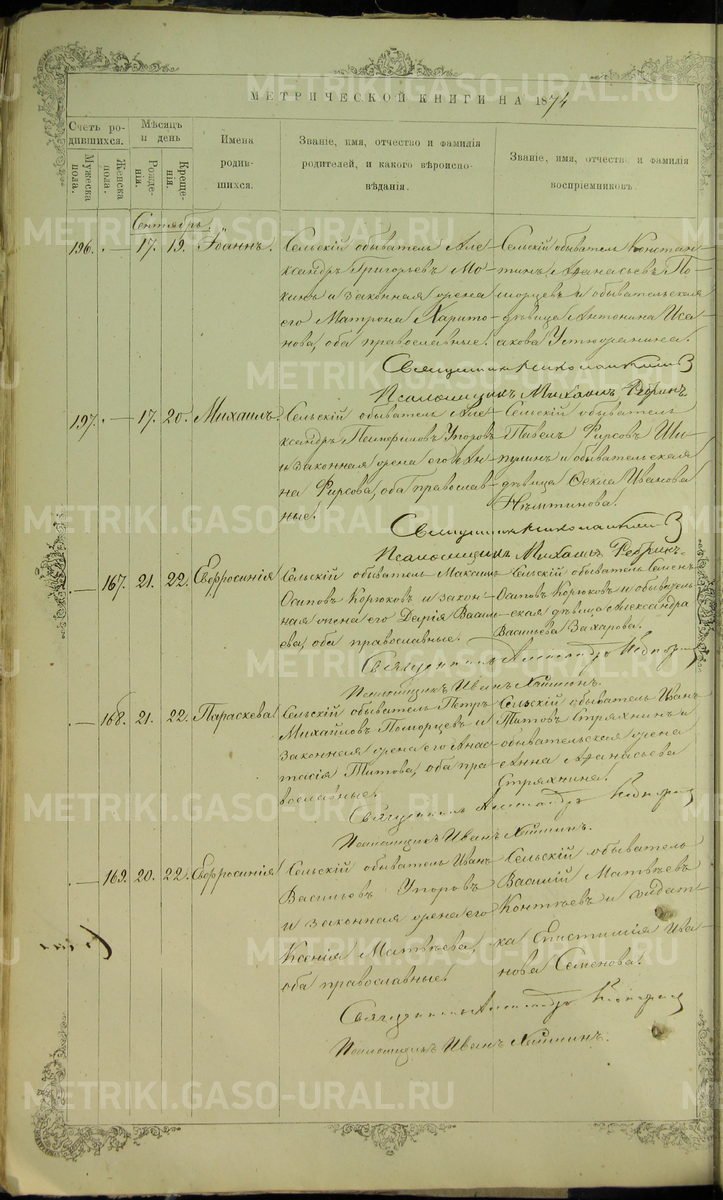 МЕТРИЧЕСКОЙ КНИГИ НА 1874
Счетъ родившихся.
Мужеска пола.
Женска пола.
Мѣсяцъ и день
Рожденія.
Крещенія.
Имена родившихся.
Званіе, имя, отчество и фамилія родителей, и какого вѣроисповѣданія.
Званіе, имя, отчество и фамилія воспріемниковъ.
Сентябрь.
196. — 17. 19. Іоаннъ.
Сельскій обыватель Але-
ксандръ Григорьевъ
и законная жена
его Матрона Харито-
нова, оба православные.
Сельскій обыватель Констан-
тинъ Аѳанасьевъ По-
морцевъ и обывательская
дѣвица Антонина Иса-
акова Устюжанина.
Священникъ
Псаломщикъ Михаилъ
197. — 17. 20. Михаилъ.
Сельскій обыватель Але-
ксандръ Памфиловъ Упоровъ
и законная жена его Ан-
на Фирсова, оба православ-
ные.
Сельскій обыватель
Павелъ Фирсовъ
и обывательская
дѣвица Ѳекла Иванова
Священникъ
Псаломщикъ Михаилъ
— 167. 21. 22. Евфросинія
Сельскій обыватель Максимъ
Осиповъ Корюковъ и закон-
ная жена его Дарія Василь-
ева, оба православные.
Сельскій обыватель Семенъ
Осиповъ Корюковъ и обыватель-
ская дѣвица Александра
Васильева Захарова.
Священникъ Александръ
Псаломщикъ Иванъ
— 168. 21. 22. Параскева
Сельскій обыватель Петръ
Михайловъ Поморцевъ и
законная жена его Анас-
тасія Титова, оба пра-
вославные.
Сельскій обыватель Иванъ
Титовъ Стряхнинъ и
обывательская жена
Анна Аѳанасьева
Стряхнина.
Священникъ Александръ
Псаломщикъ Иванъ
— 169. 20. 22. Евфросинія
Сельскій обыватель Иванъ
Васильевъ Упоровъ
и законная жена его
Ксенія Матвѣева,
оба православные.
Сельскій обыватель
Василій Матвѣевъ
Коптѣевъ и солдат-
ка Епистимія Ива-
нова Семенова.
Священникъ Александръ
Псаломщикъ Иванъ
METRIKI.GASO-URAL.RU